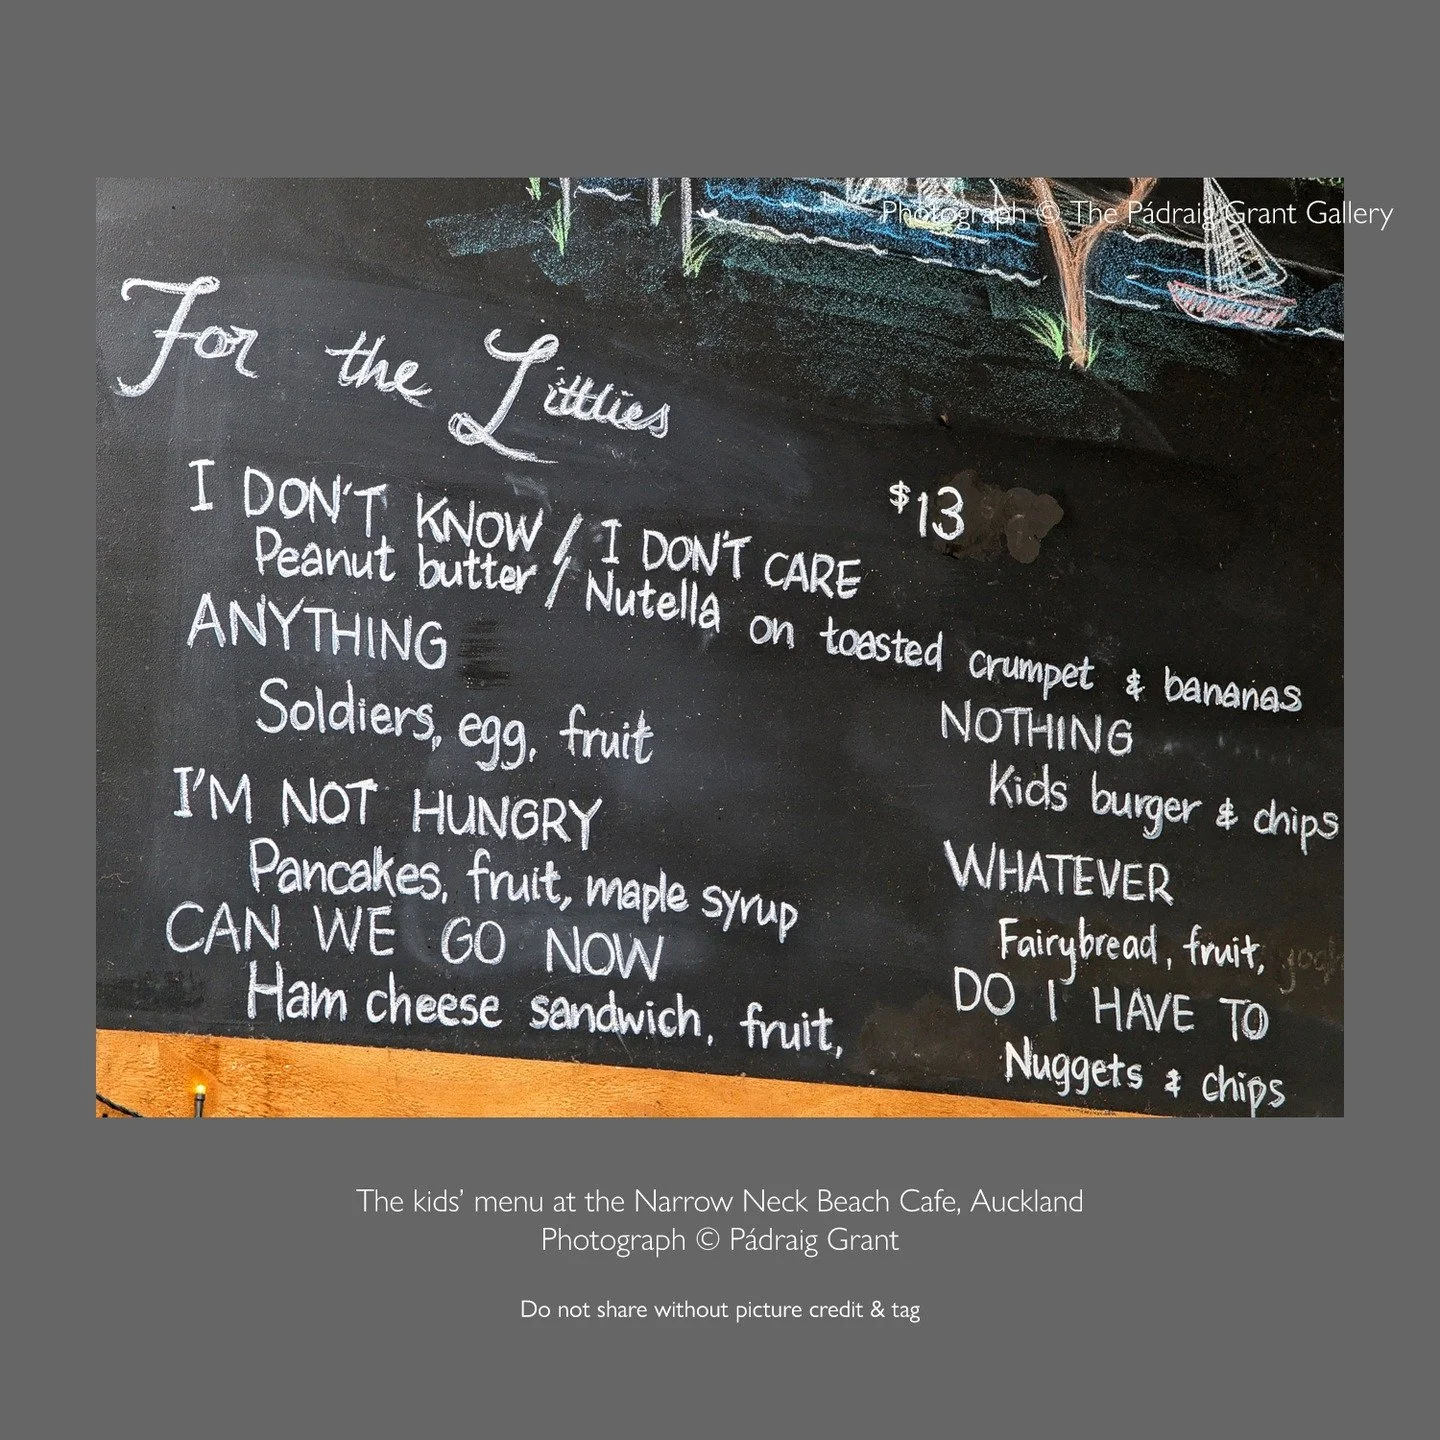 Photograph © The Pádraig Grant Gallery
For the Littlies
$13
I DON'T KNOW / I DON'T CARE
Peanut butter / Nutella on toasted crumpet & bananas
ANYTHING
Soldiers, egg, fruit
I'M NOT HUNGRY
Pancakes, fruit, maple syrup
CAN WE GO NOW
Ham cheese sandwich, fruit,
NOTHING
Kids burger & chips
WHATEVER
Fairybread, fruit,
DO I HAVE TO
Nuggets & chips
The kids' menu at the Narrow Neck Beach Cafe, Auckland
Photograph © Pádraig Grant
Do not share without picture credit & tag